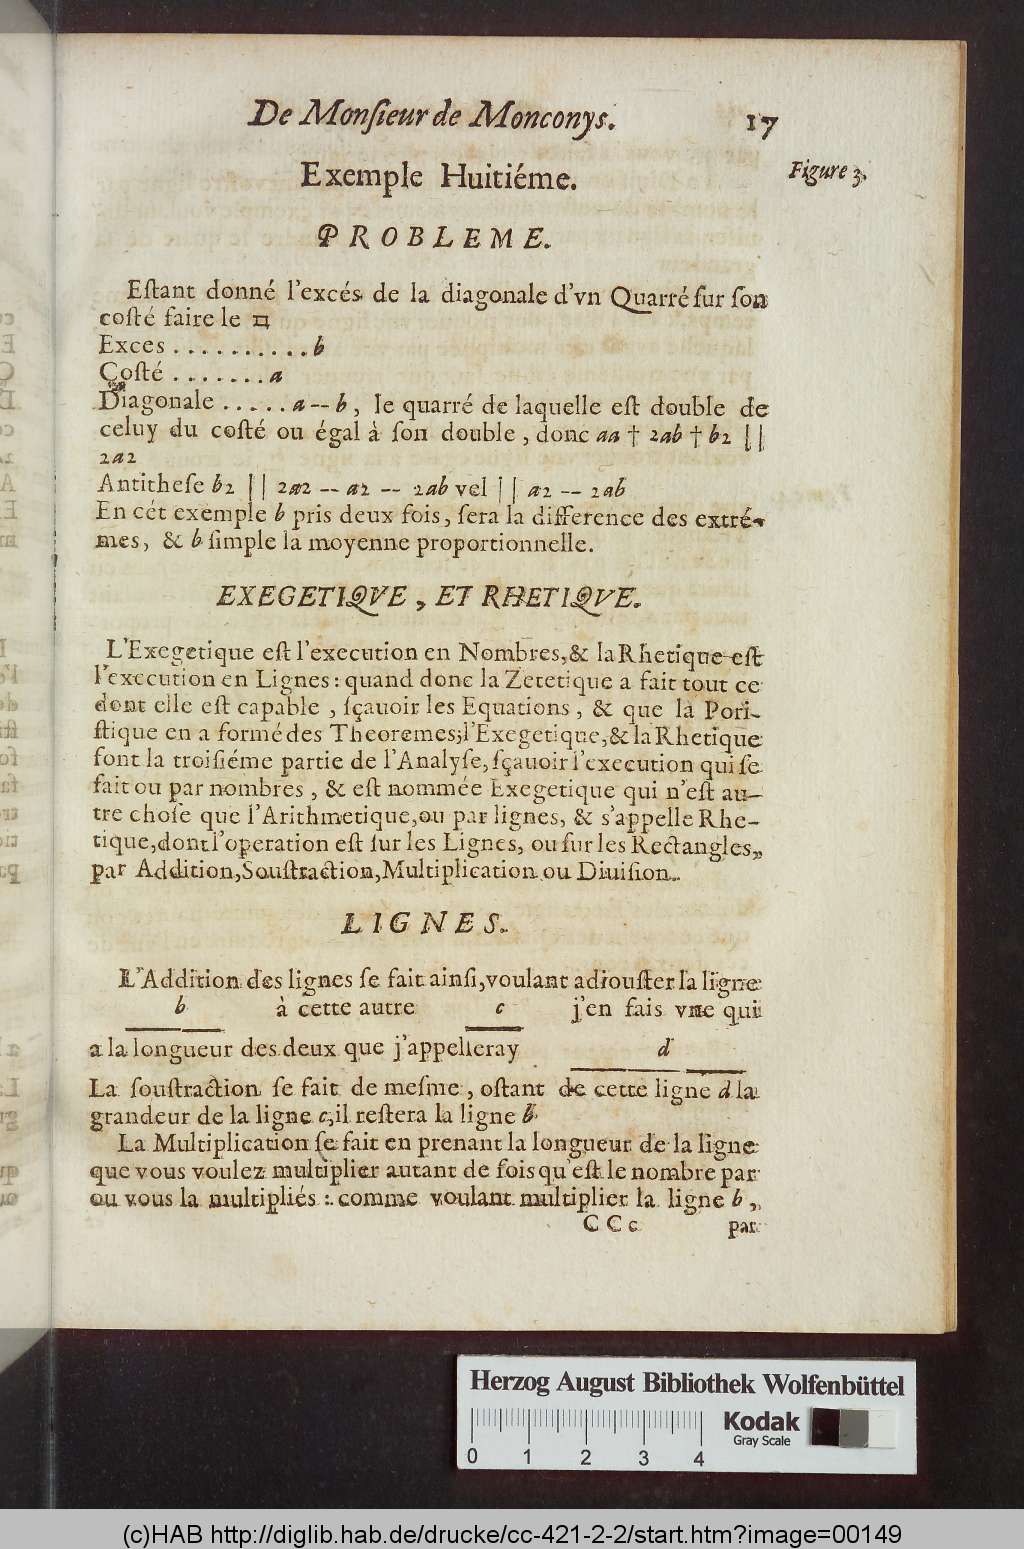 De Monſieur de Monconys. 17
Exemple Huitiéme. Figure 3.
PROBLEME.
Eſtant donné l'excés de la diagonale d'vn Quarré ſur ſon
coſté faire le □
Exces . . . . . . . . . . b
Coſté . . . . . . . a
Diagonale . . . . . a -- b, le quarré de laquelle eſt double de
celuy du coſté ou égal à ſon double, donc aa † 2ab † b2 ||
2a2
Antitheſe b2 || 2a2 -- a2 -- 2ab vel || a2 -- 2ab
En cét exemple b pris deux fois, ſera la difference des extré-
mes, & b ſimple la moyenne proportionnelle.
EXEGETIQVE, ET RHETIQVE.
L'Exegetique eſt l'execution en Nombres, & la Rhetique eſt
l'execution en Lignes: quand donc la Zetetique a fait tout ce
dont elle eſt capable, ſçauoir les Equations, & que la Pori-
ſtique en a formé des Theoremes; l'Exegetique, & la Rhetique
font la troiſiéme partie de l'Analyſe, ſçauoir l'execution qui ſe
fait ou par nombres, & eſt nommée Exegetique qui n'eſt au-
tre choſe que l'Arithmetique, ou par lignes, & s'appelle Rhe-
tique, dont l'operation eſt ſur les Lignes, ou ſur les Rectangles,
par Addition, Souſtraction, Multiplication ou Diuiſion.
LIGNES.
L'Addition des lignes ſe fait ainſi, voulant adiouſter la ligne
b à cette autre c j'en fais vne qui
a la longueur des deux que j'appelleray d
La ſouſtraction ſe fait de meſme, oſtant de cette ligne d la
grandeur de la ligne c, il reſtera la ligne b.
La Multiplication ſe fait en prenant la longueur de la ligne
que vous voulez multiplier autant de fois qu'eſt le nombre par
ou vous la multipliés: comme voulant multiplier la ligne b,
CCc par
Herzog August Bibliothek Wolfenbüttel
Kodak
Gray Scale
0 1 2 3 4
(c)HAB http://diglib.hab.de/drucke/cc-421-2-2/start.htm?image=00149